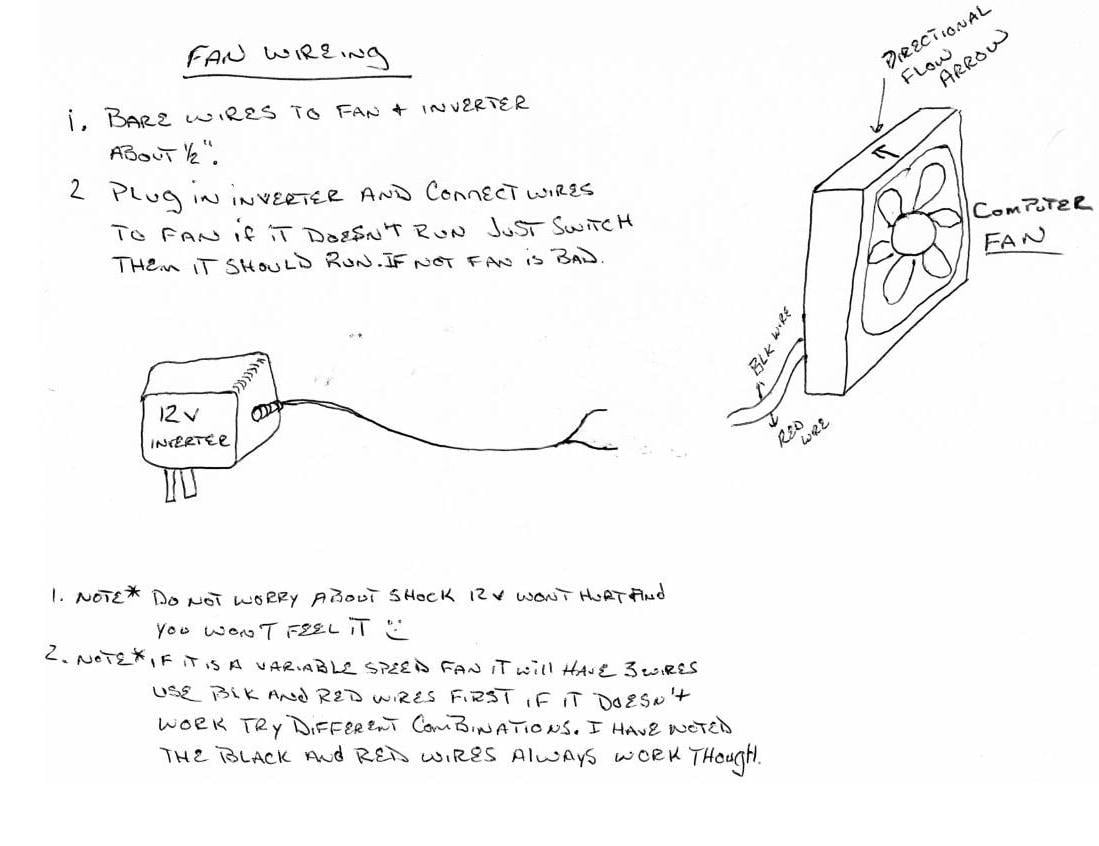 FAN WIREING
1. BARE WIRES TO FAN + INVERTER
ABOUT 1/2".
2 PLUG IN INVERTER AND CONNECT WIRES
TO FAN IF IT DOESN'T RUN JUST SWITCH
THEM IT SHOULD RUN. IF NOT FAN IS BAD.
DIRECTIONAL
FLOW
ARROW
COMPUTER
FAN
BLK WIRE
RED
WIRE
12V
INVERTER
1. NOTE* DO NOT WORRY ABOUT SHOCK 12V WONT HURT AND
YOU WONT FEEL IT
2. NOTE* IF IT IS A VARIABLE SPEED FAN IT WILL HAVE 3 WIRES
USE BLK AND RED WIRES FIRST IF IT DOESN'T
WORK TRY DIFFERENT COMBINATIONS. I HAVE NOTED
THE BLACK AND RED WIRES ALWAYS WORK THOUGH.